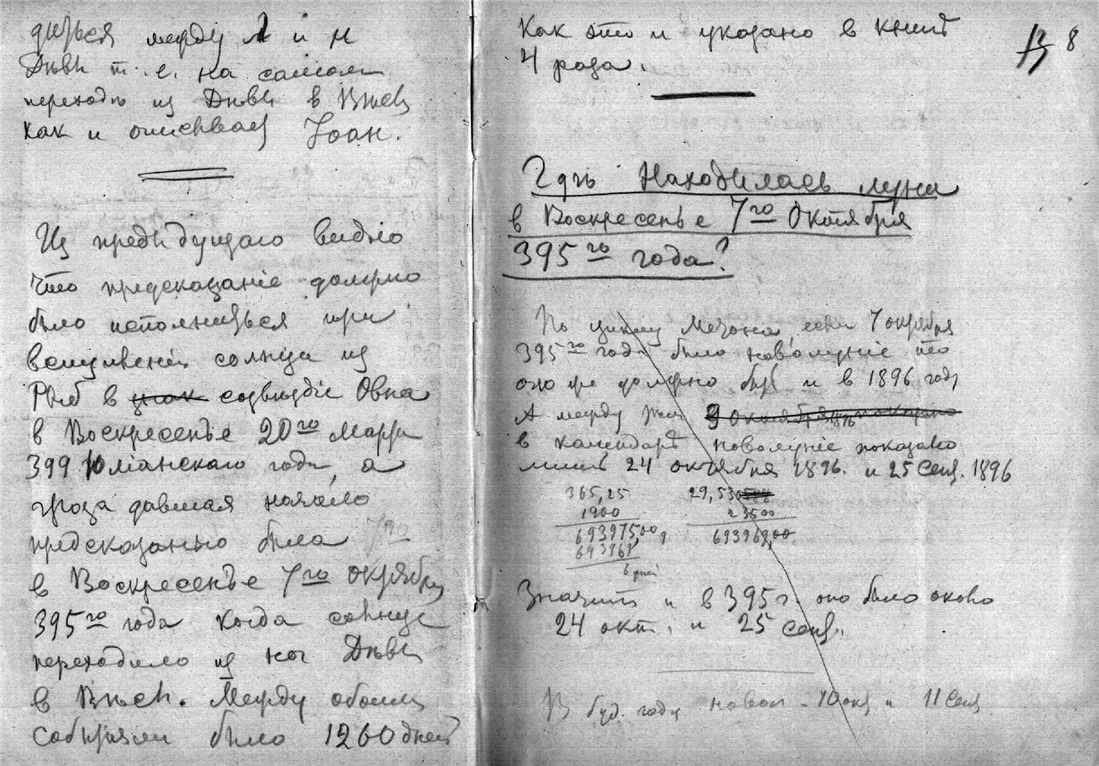 между λ и н
Дѣвы т. е. на самом
переходѣ из Дѣвы в Вѣсы
как и описывает Іоан.
Из предъидущаго видно
Что предсказаніе должно
было исполниться при
вступлении солнца из
Рыб в знак созвѣздіе Овна
в Воскресенье 20го Марта
399 Юліанскаго года а
гроза давшая начало
предсказанью была 7го
в Воскресенье 7го октября
395го года когда солнце
переходило из ног Дѣвы
в Вѣсы. Между обоими
событіями было 1260 дней
Как это и указано в книгѣ
4 раза.
13 8
Гдѣ Находилась луна
в Воскресенье 7го Октября
395го года?
По циклу Метона если 7 октября
395го года было новолуніе то
оно же должно быть и в 1896 году
А между тѣм 9 Октября
в календарѣ новолуніе показано
лишь 24 октября 1896. и 25 сент. 1896
365,25 29,530588
1900 23500
693975,00 693969,00
693969
6 дней
Значит и в 395 г. оно было около
24 окт. и 25 сент.
В буд. году новол. 10 окт и 11 сент